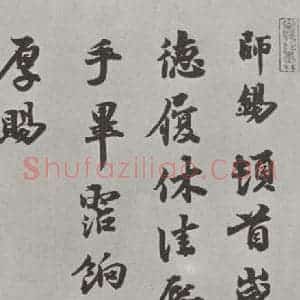 師錫頓首
德履休佳
手畢霑餉
厚賜
Shufaziliao.COM